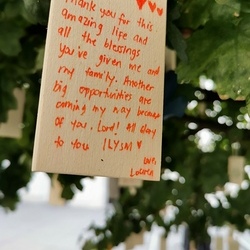 Thank you for this
amazing life and
all the blessings
you've given me and
my family. Another
big opportunities are
coming my way because
of you, Lord! All Glory
to you ILYSM ♥
Luv,